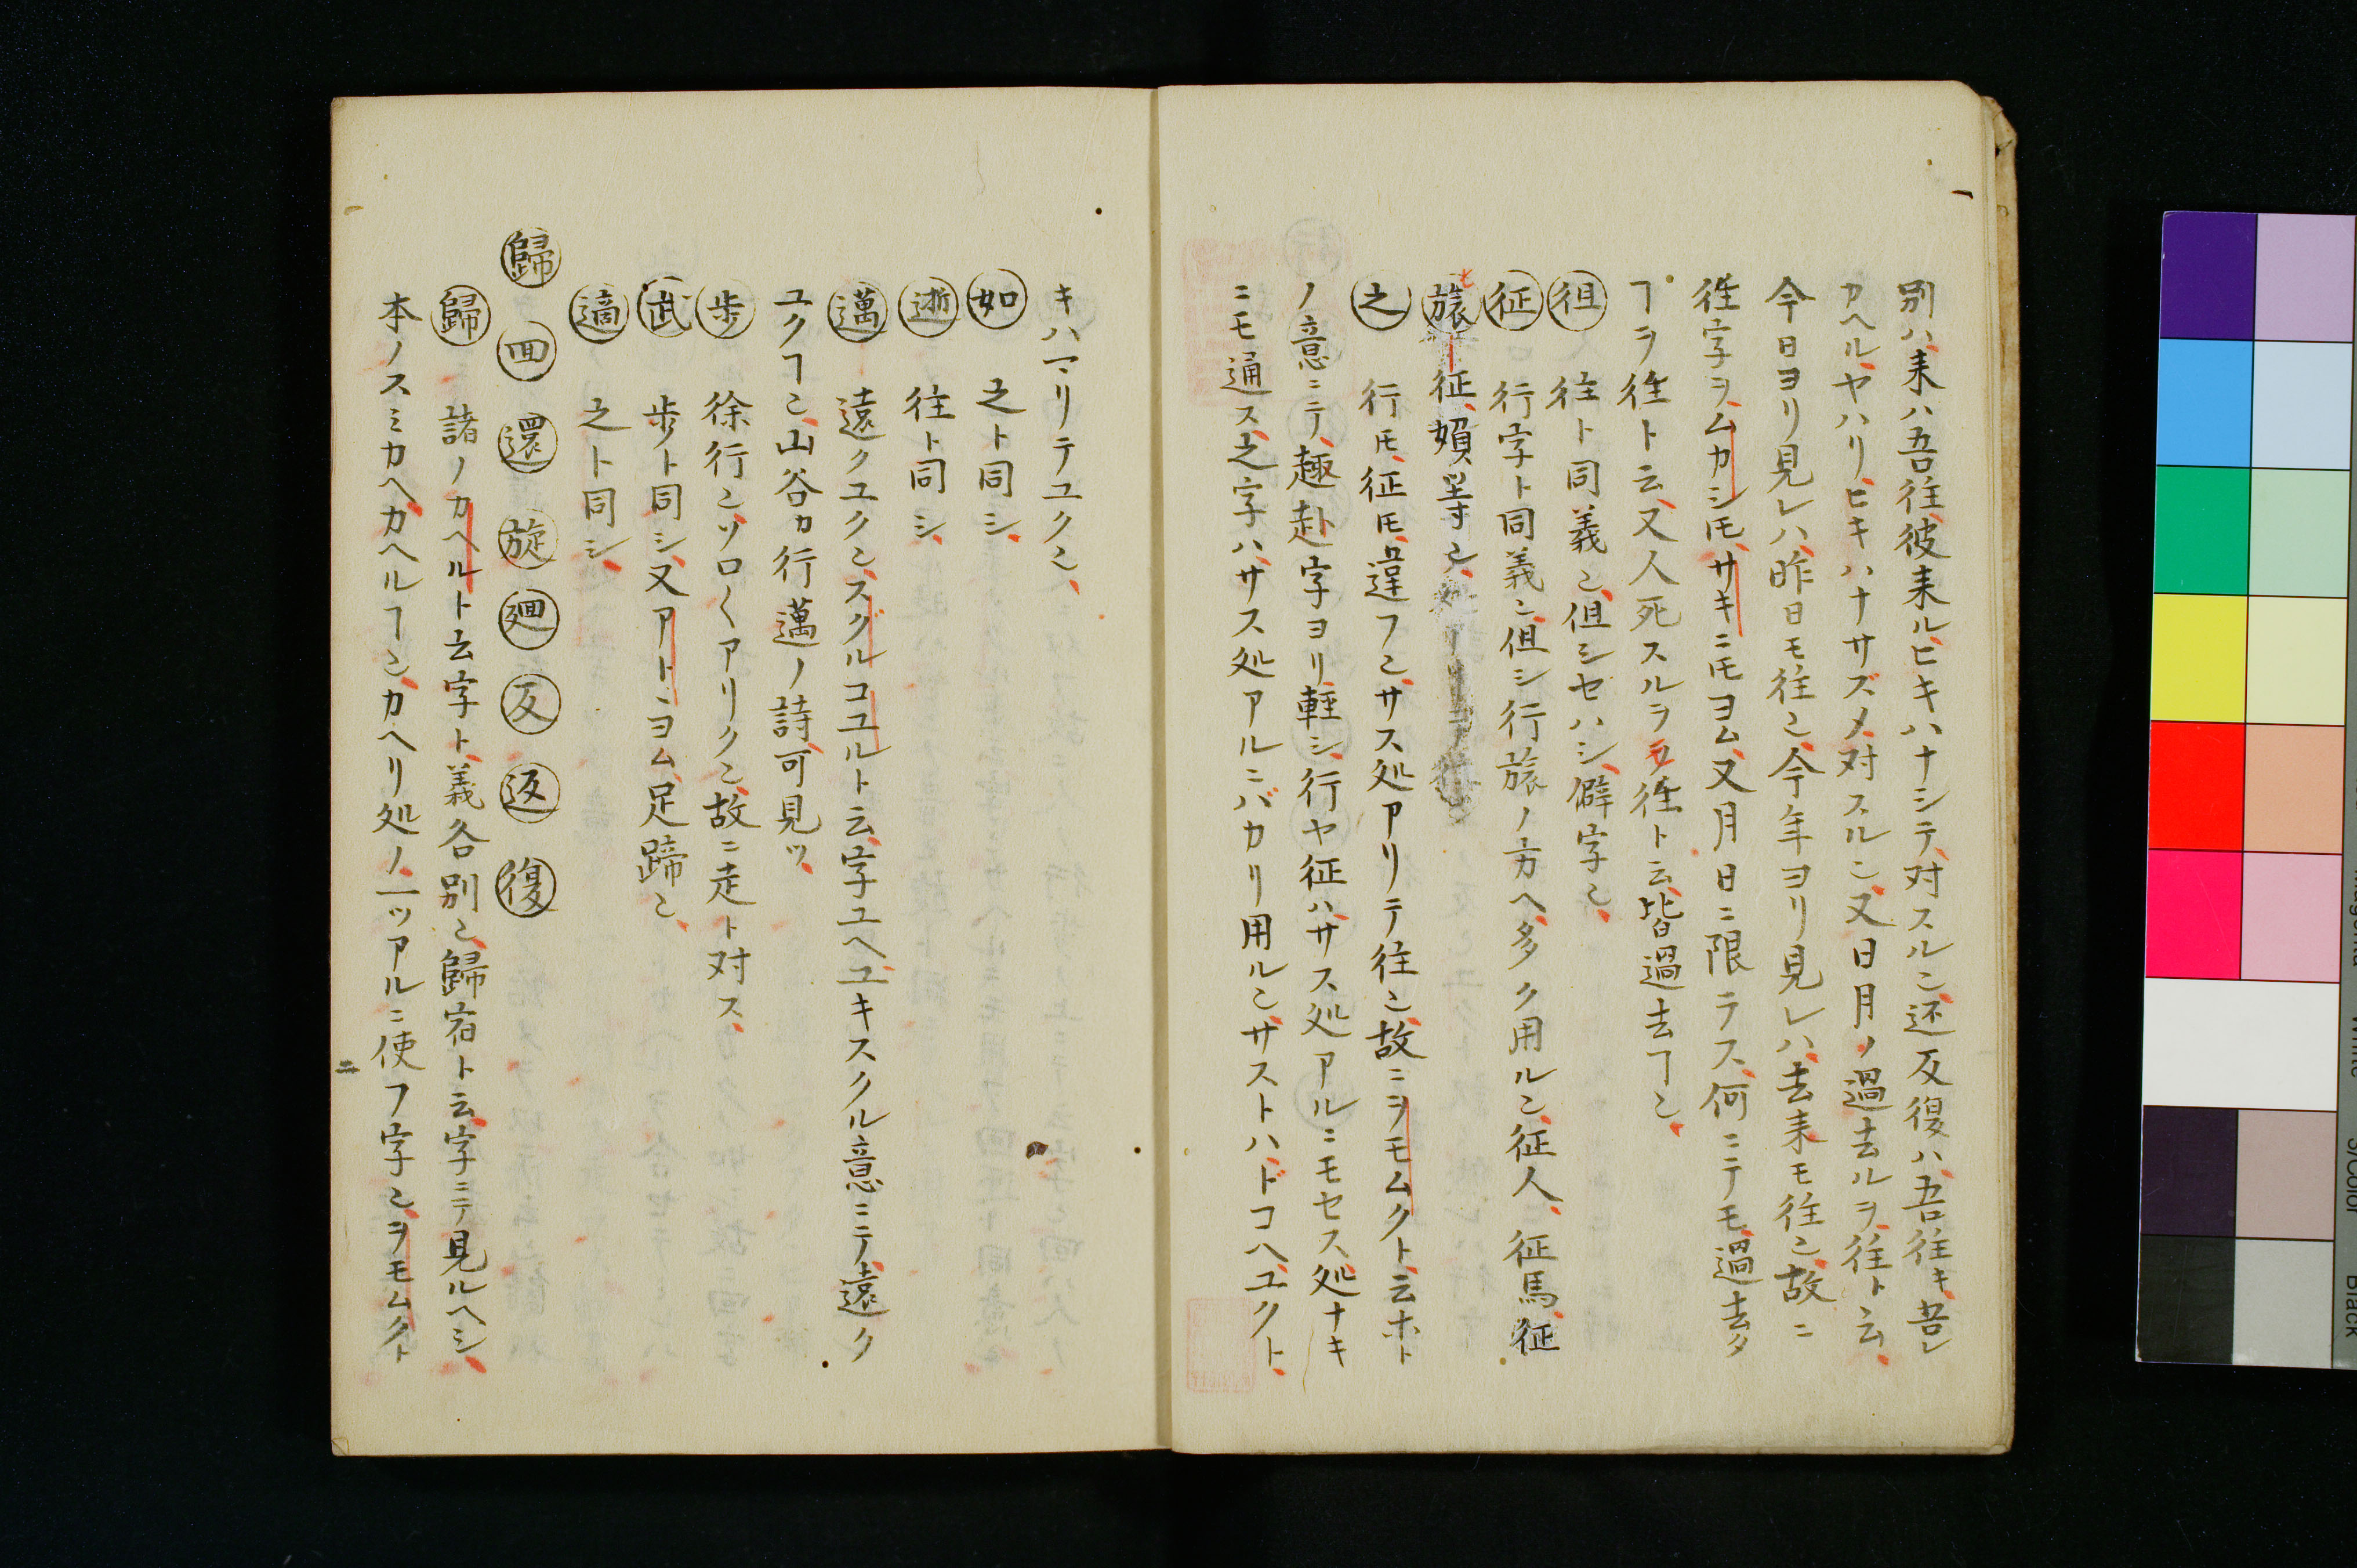 別ハ来ハ吾往彼来ルヒキハナシテ対スル也还反復ハ吾往キ吾レ
カヘルヤハリヒキハナサズメ対スル也又日月ノ過去ルヲ往ト云
今日ヨリ見レハ昨日モ往也今年ヨリ見レハ去来モ往也故ニ
往字ヲムカシ𪜈サキニ𪜈ヨム又月日ニ限ラス何ニテモ過去タ
ヿヲ往ト云又人死スルヲモ往ト云皆過去ヿ也
徂 往ト同義也但シセハシ僻字也
征 行字ト同義也但シ行旅ノ方ヘ多ク用ル也征人征馬征
旅征頻等也
之 行𪜈征𪜈違フ也サス処アリテ往也故ニヲモムクト云ホト
ノ意ニテ趣赴字ヨリ軽シ行ヤ征ハサス処アルニモセス処ナキ
ニモ通ス之字ハサス処アルニバカリ用ル也サストハドコヘユクト
キハマリテユク也
如 之ト同シ
逝 往ト同シ
邁 遠クユク也スグルコユルト云字ユヘユキスクル意ニテ遠ク
ユクヿ也山谷カ行邁ノ詩可見ツ
歩 徐行也ソロ〱アリク也故ニ走ト対ス
武 歩ト同シ又アトヨム足蹄也
適 之ト同シ
歸 回 還 旋 廻 反 返 復
歸 諸ノカヘルト云字ト義各別也歸宿ト云字ニテ見ルヘシ
本ノスミカヘカヘルヿ也カヘリ処ノ一ツアルニ使フ字也ヲモムクト
二